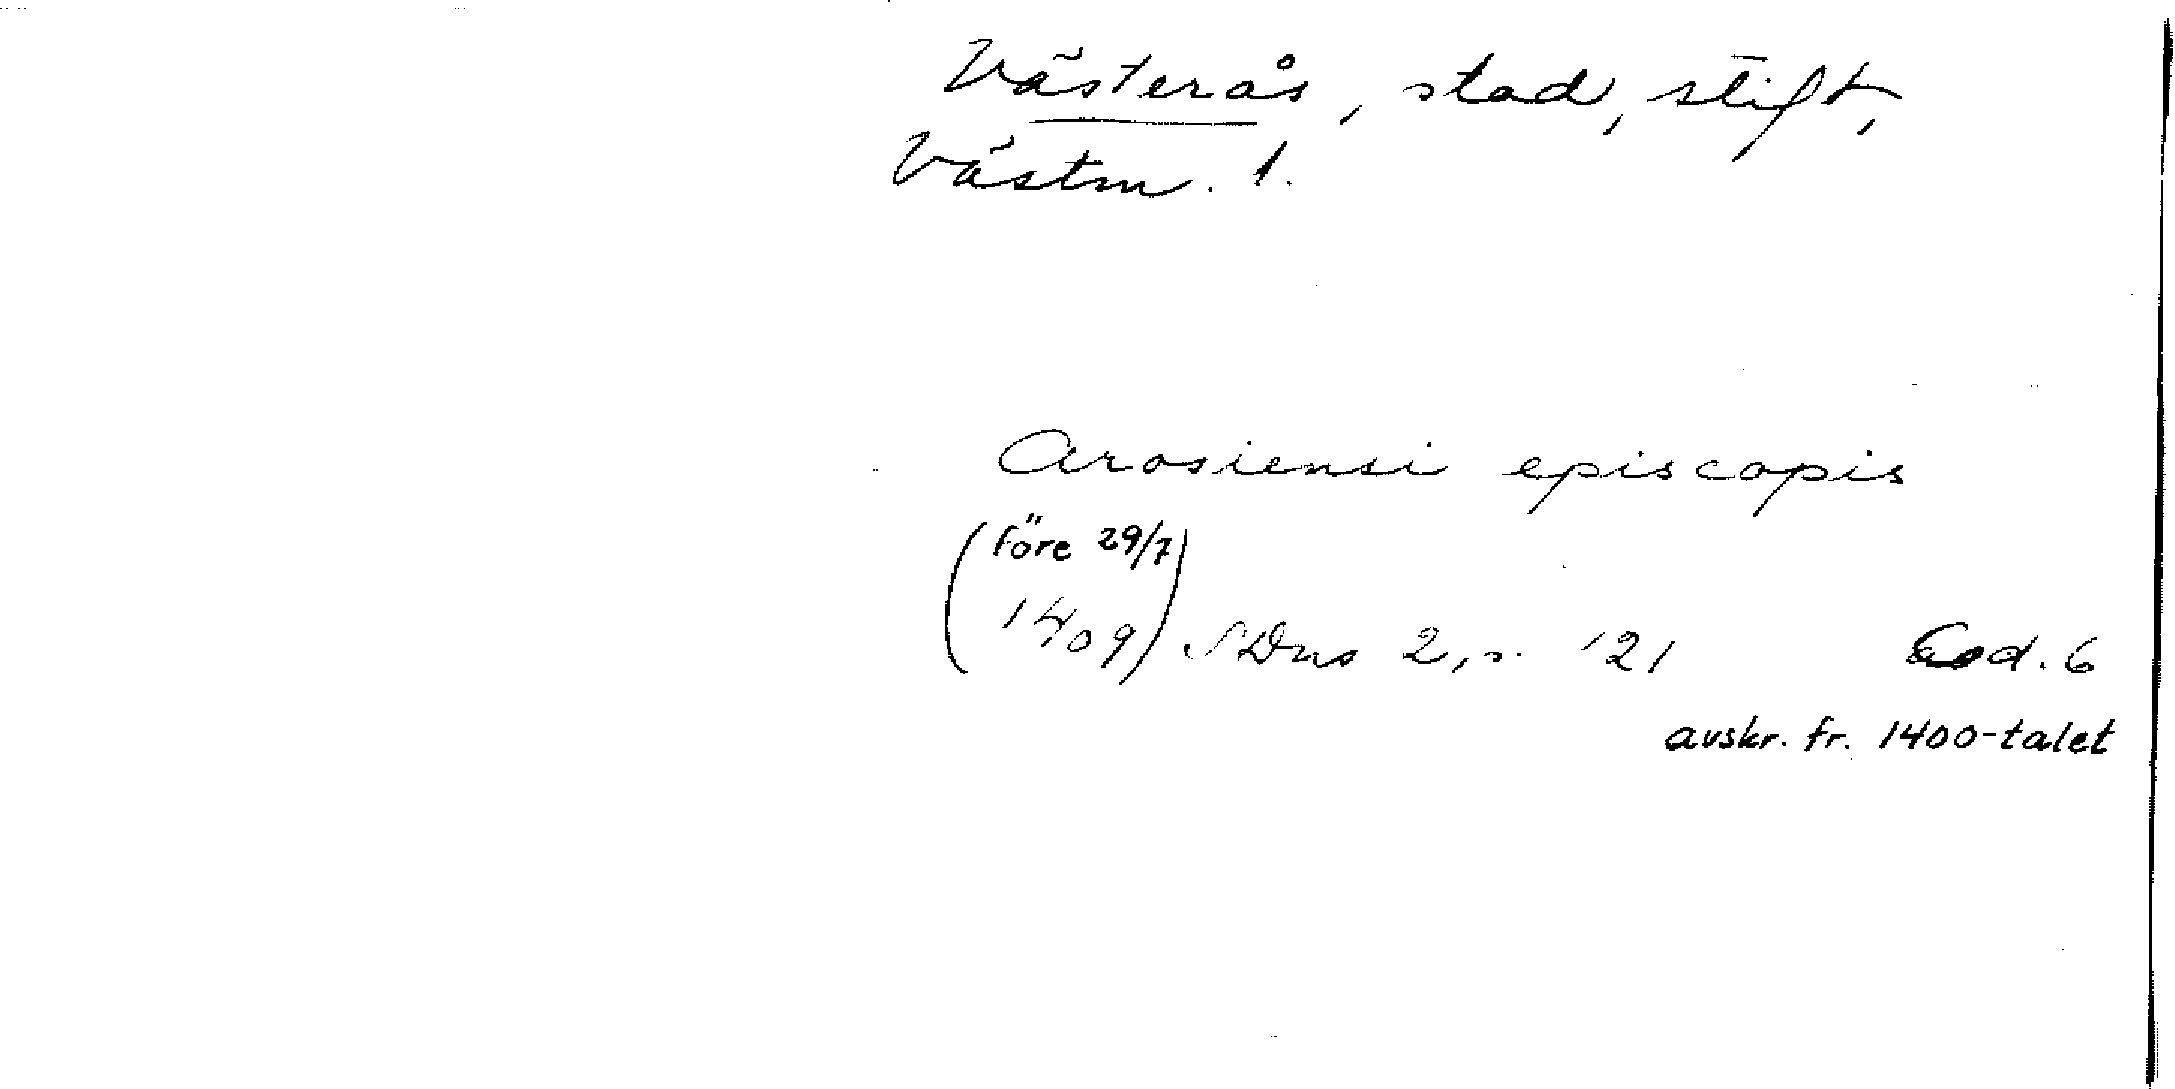 Västerås, stad, stift,
Västm. l.
Arosiensi episcopis
(före 29/7
1409) SDns 2, s. 121
Cod. 6
avskr. fr. 1400-talet